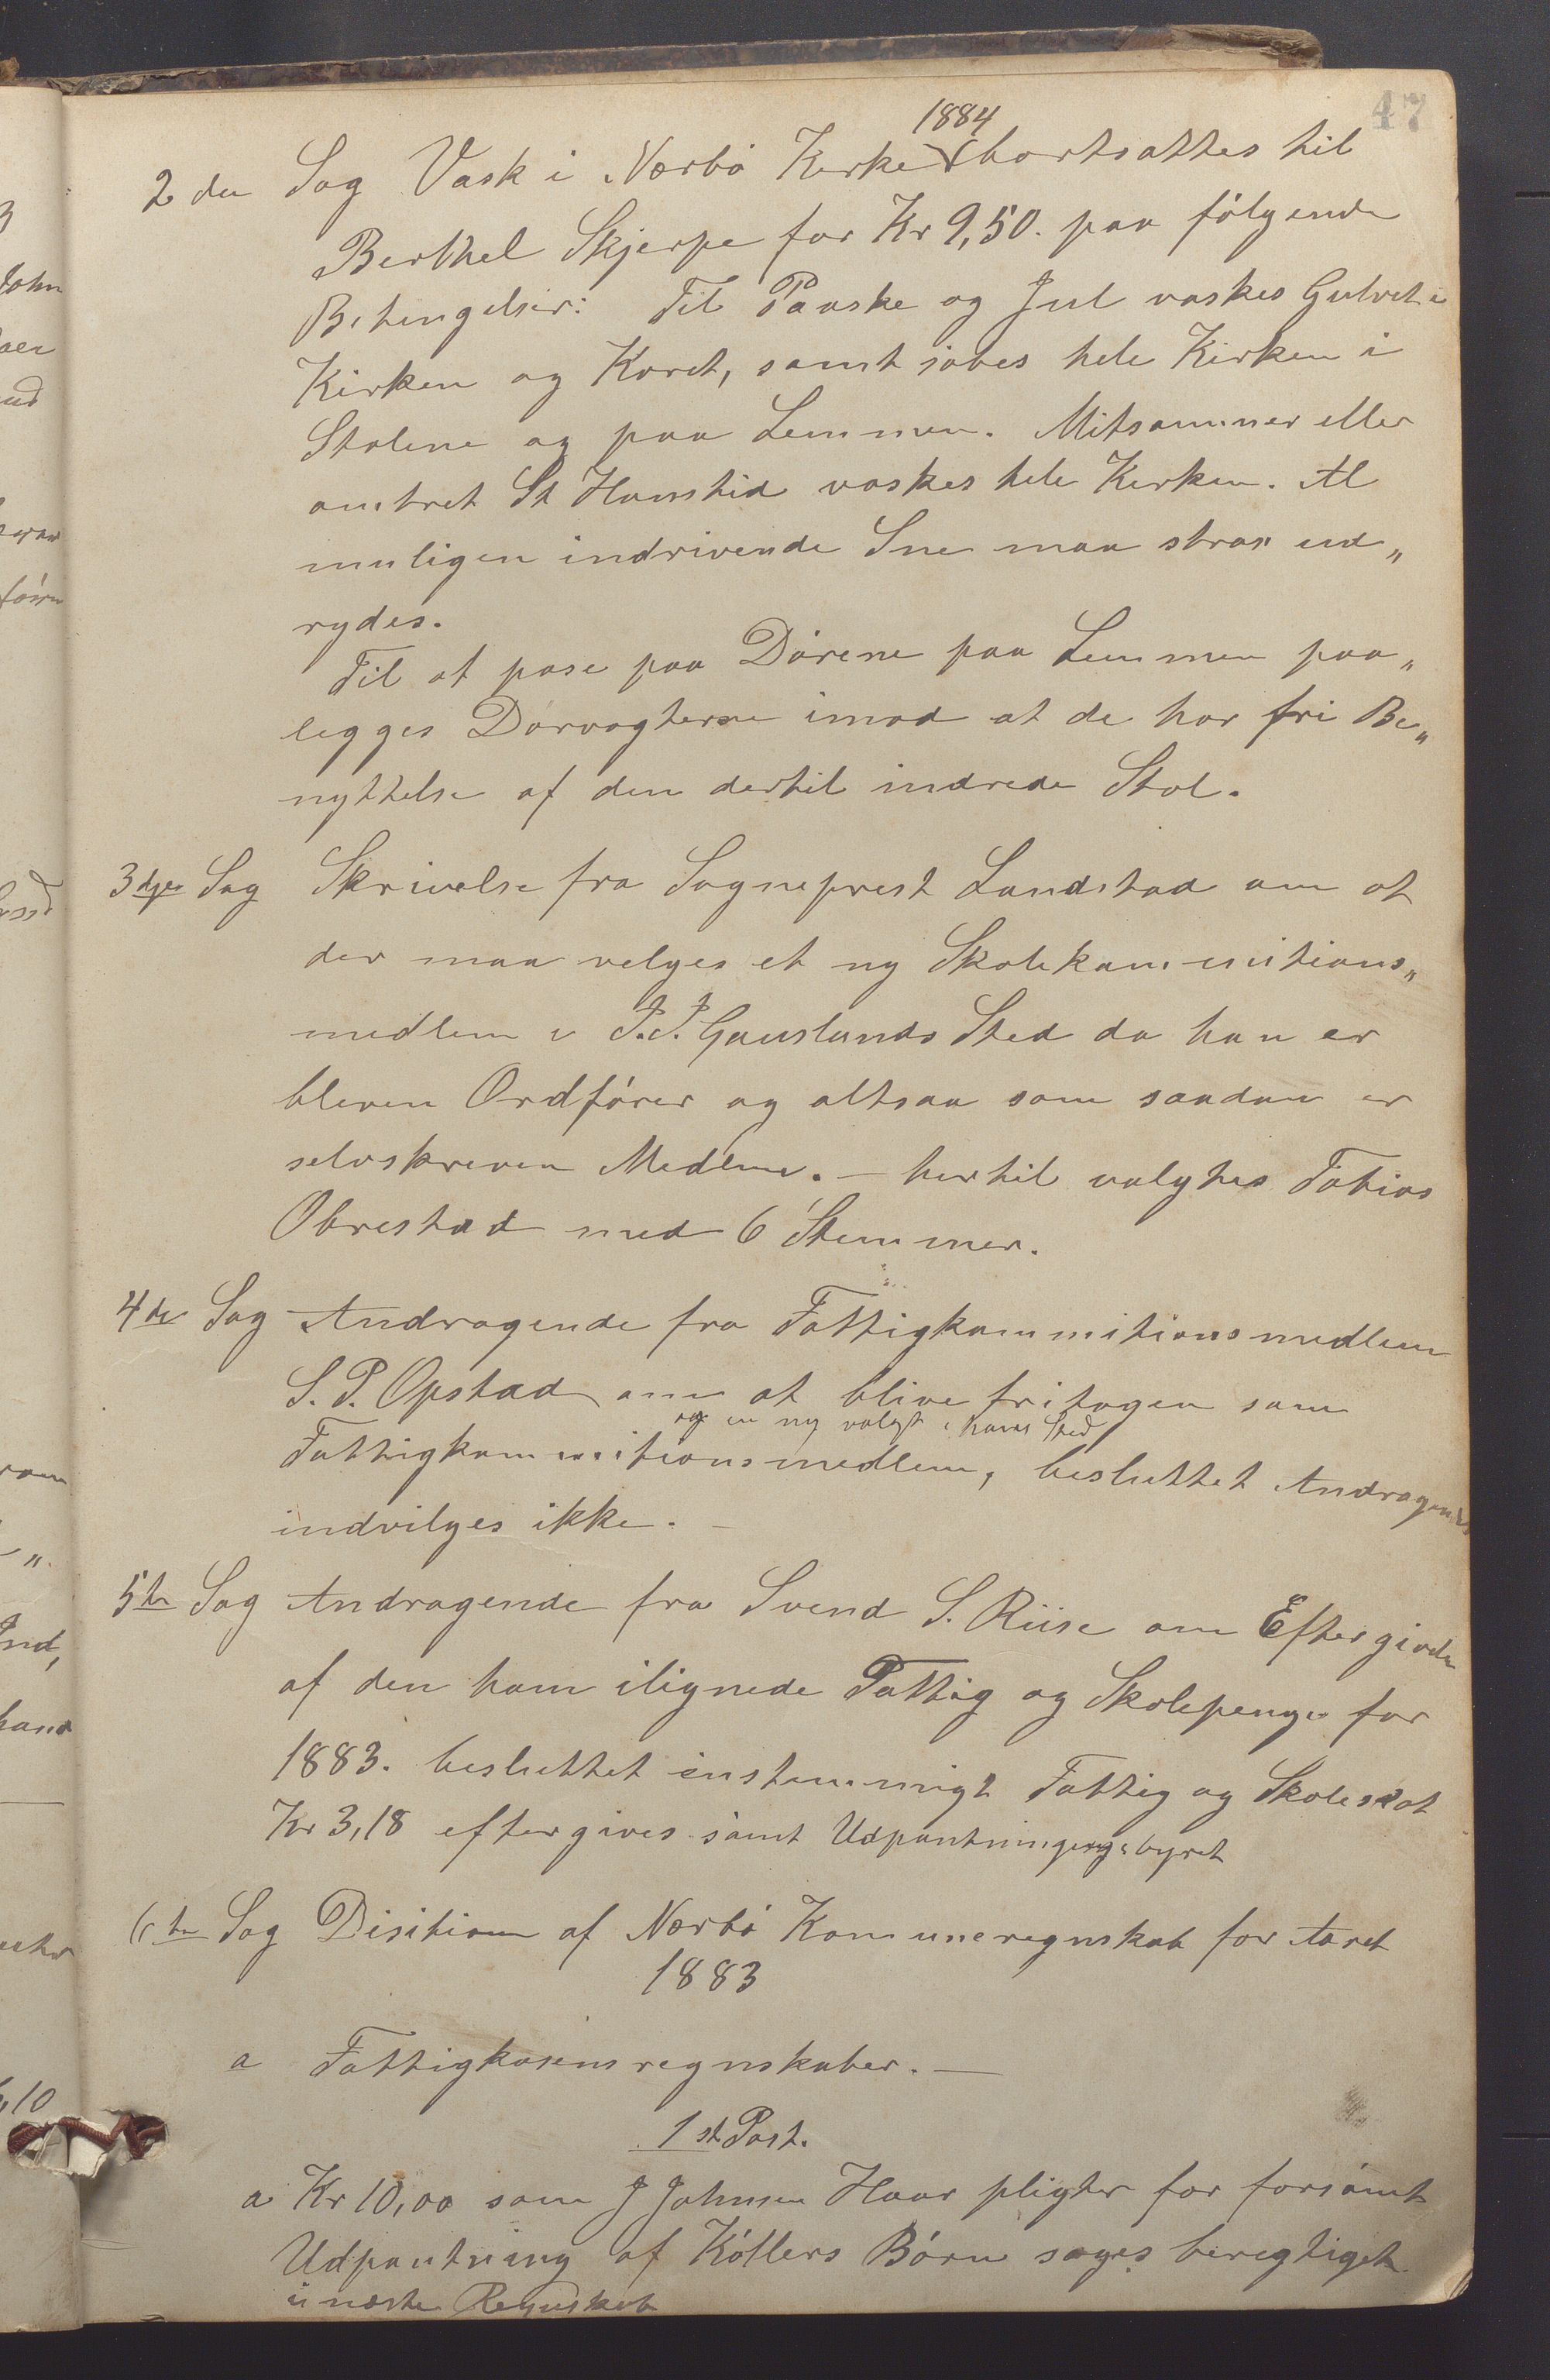 47
1884
2den Sag Vask i Nærbø Kirke bortsattes til
Berthel Skjerpe for Kr 9,50. paa følgende
Betingelser: Til Paaske og Jul vaskes Gulvet i
Kirken og Koret, samt sobes hele Kirken i
Stolene og paa Lemmen. Mitsommer eller
omtret St Hanstid vaskes hele Kirken. Al
muligen indrivende Sne maa strax ud„
rydes.
Til at pase paa Dørene paa Lemmen paa„
legges Dørvogterne imod at de har fri Be„
nyttelse af den dertil indrede Stol.
3dje Sag Skrivelse fra Sogneprest Landstad om at
der maa velges et ny Skolekommitions„
medlem i P. P. Gauslands Sted da han er
bleven Ordfører og altsaa som saadan er
selvskreven Medlem. — hertil valgtes Tobias
Obrestad med 6 Stemmer.
4de Sag Andragende fra Fattigkommitionsmedlem
S. P. Opstad om at blive fritagen som
og en ny valgt i hans Sted
Fattigkommitionsmedlem, besluttet Andragendet
indvilges ikke. —
5te Sag Andragende fra Svend S. Riise om Eftergivelse
af den ham ilignede Fattig og Skolepenge for
1883. besluttet enstemmigt Fattig og Skoleskat
Kr 3,18 eftergives samt Udpantningsgebyret
6te Sag Disition af Nærbø Komuneregnskab for Aaret
1883
a Fattigkasens regnskaber. —
1ste Post.
a Kr 10,00 som J Johnsen Haar pligter for forsømt
Udpantning af Køllers Børn søges beregtiget
i næste Regnskab